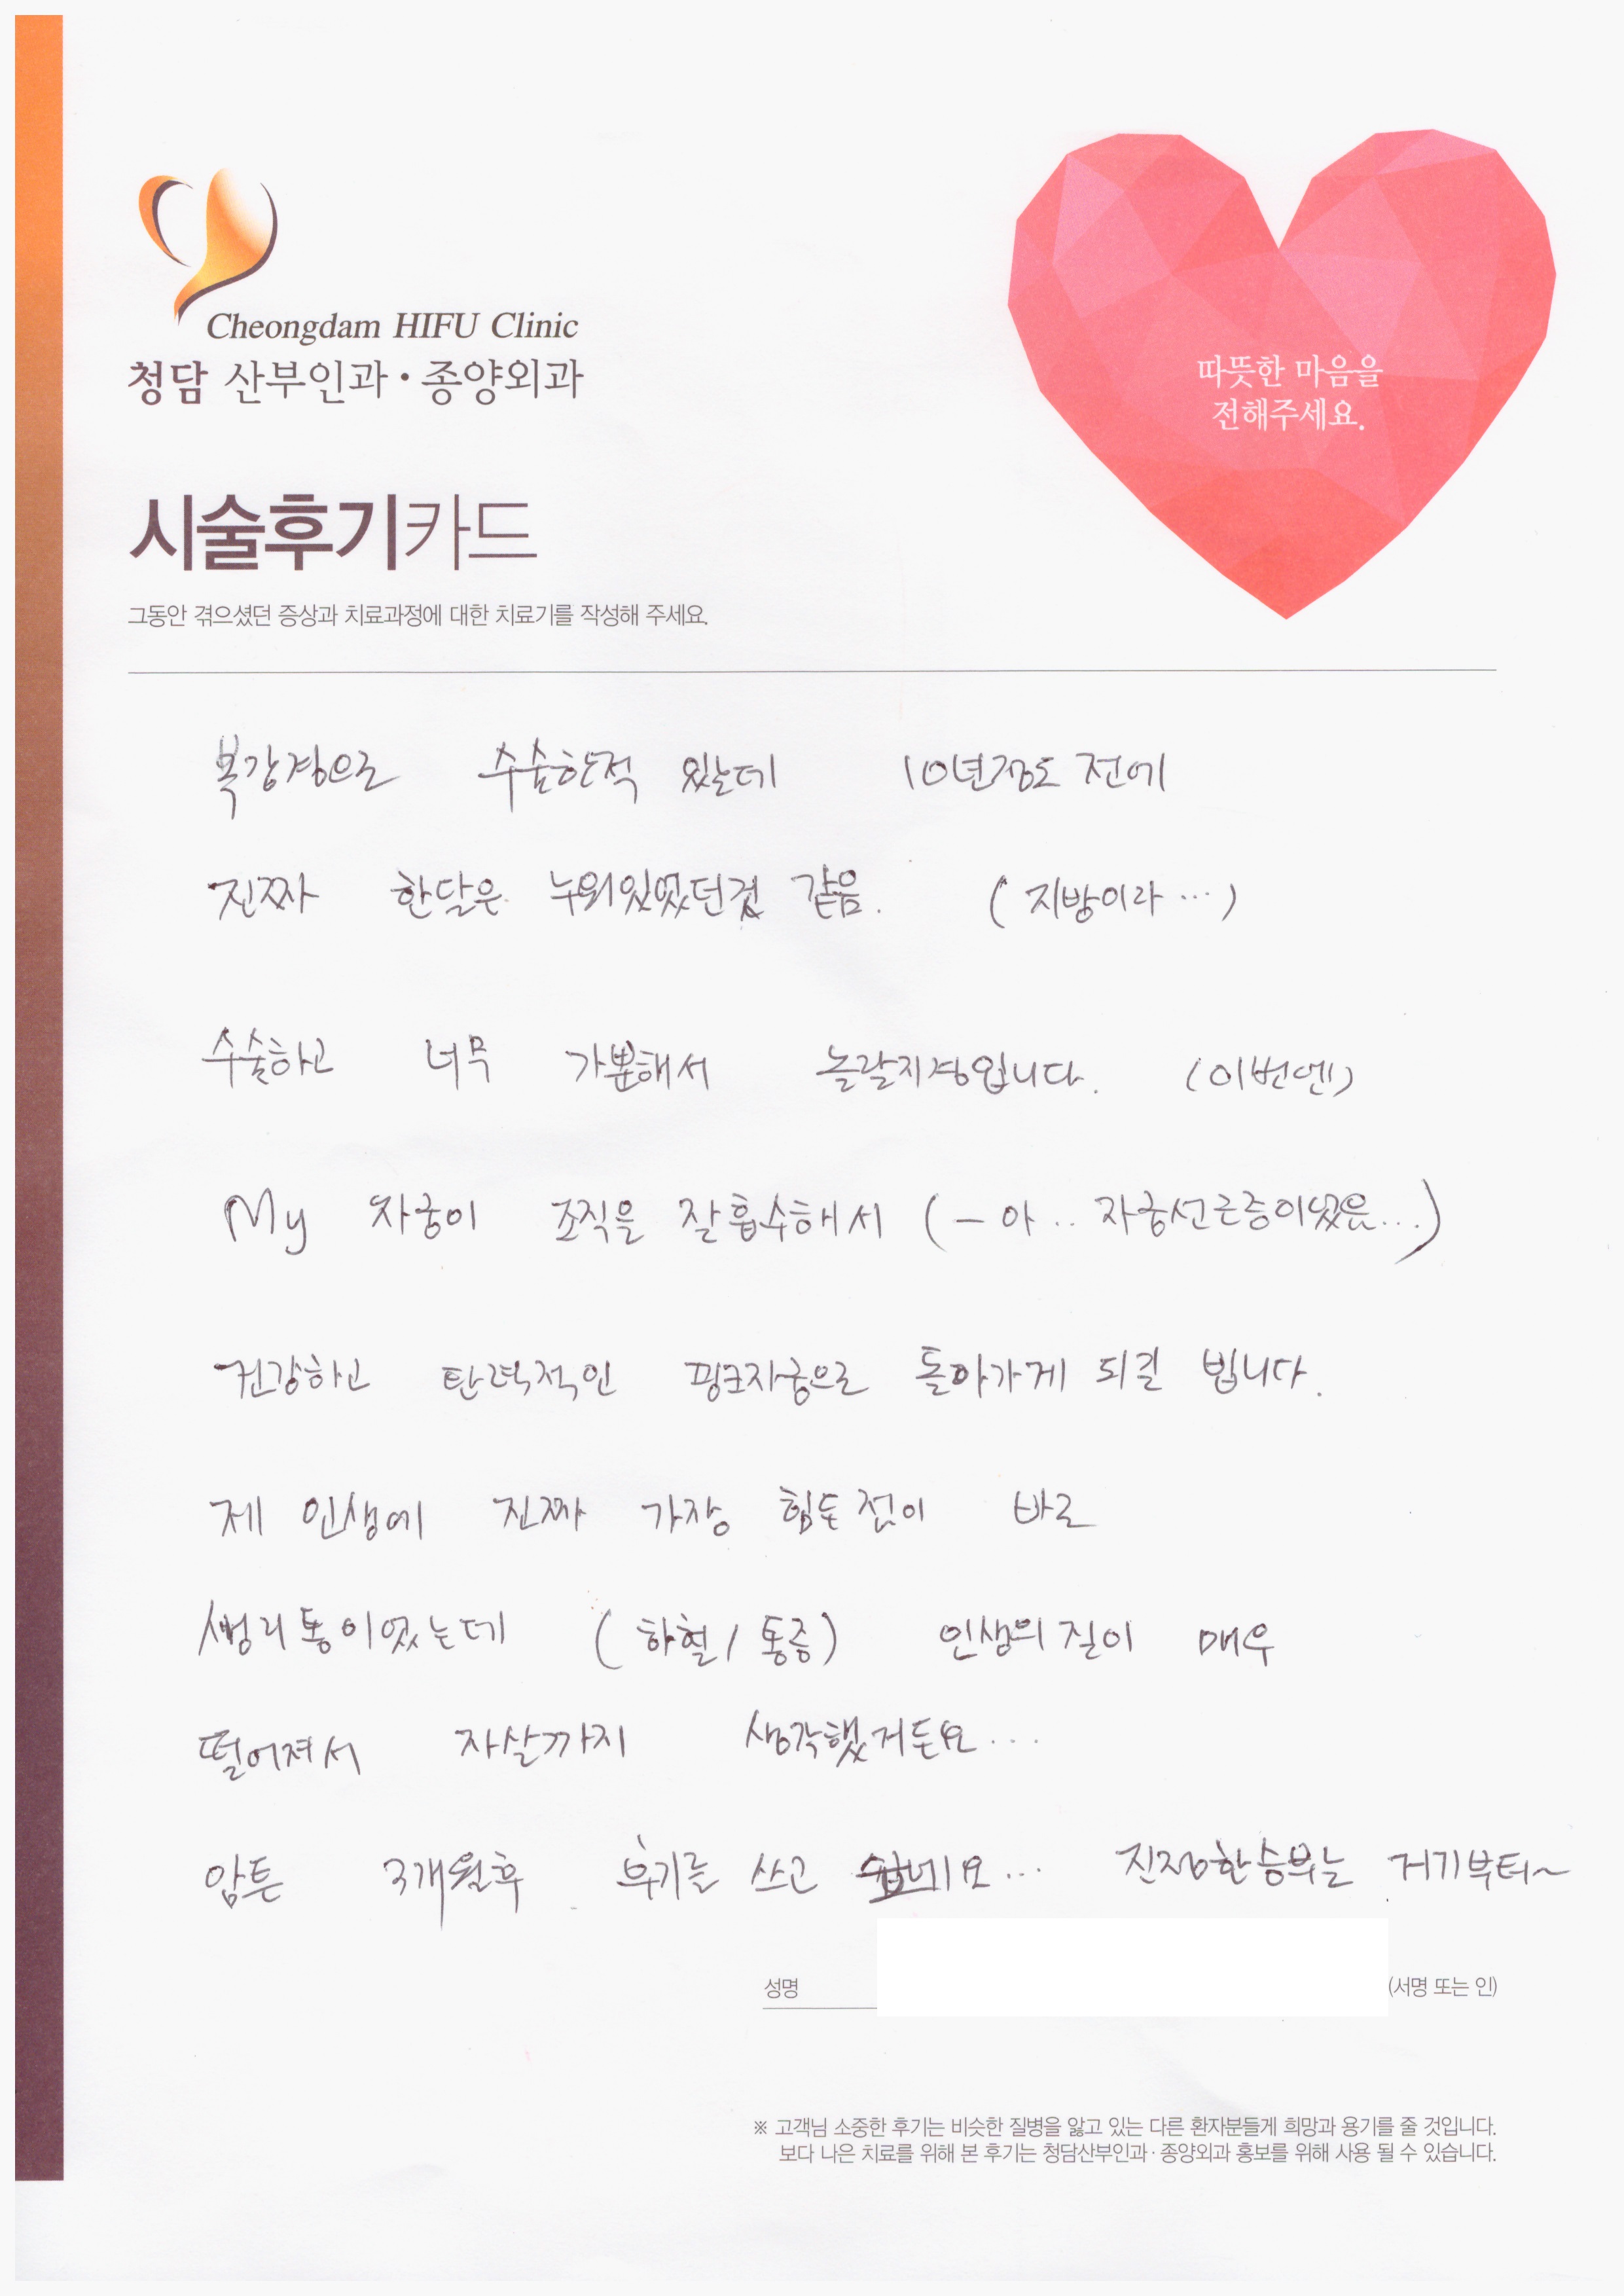 Cheongdam HIFU Clinic
청담 산부인과·종양외과
따뜻한 마음을
전해주세요.
시술후기카드
그동안 겪으셨던 증상과 치료과정에 대한 치료기를 작성해 주세요.
복강경으로 수술한적 있는데 10년정도 전에
진짜 한달은 누워있었던것 같음. (지방이라...)
수술하고 너무 가뿐해서 놀랄지경입니다. (이번엔)
My 자궁이 조직을 잘흡수해서 (- 아.. 자궁선근증이었음...)
건강하고 탄력적인 핑크자궁으로 돌아가게 되길 빕니다.
제 인생에 진짜 가장 힘든점이 바로
생리통이었는데 (하혈/통증) 인생의 질이 매우
떨어져서 자살까지 생각했거든요...
암튼 3개월후 후기를 쓰고 싶네요... 진정한승부는 거기부터~
성명
(서명 또는 인)
※ 고객님 소중한 후기는 비슷한 질병을 앓고 있는 다른 환자분들게 희망과 용기를 줄 것입니다.
보다 나은 치료를 위해 본 후기는 청담산부인과·종양외과 홍보를 위해 사용 될 수 있습니다.